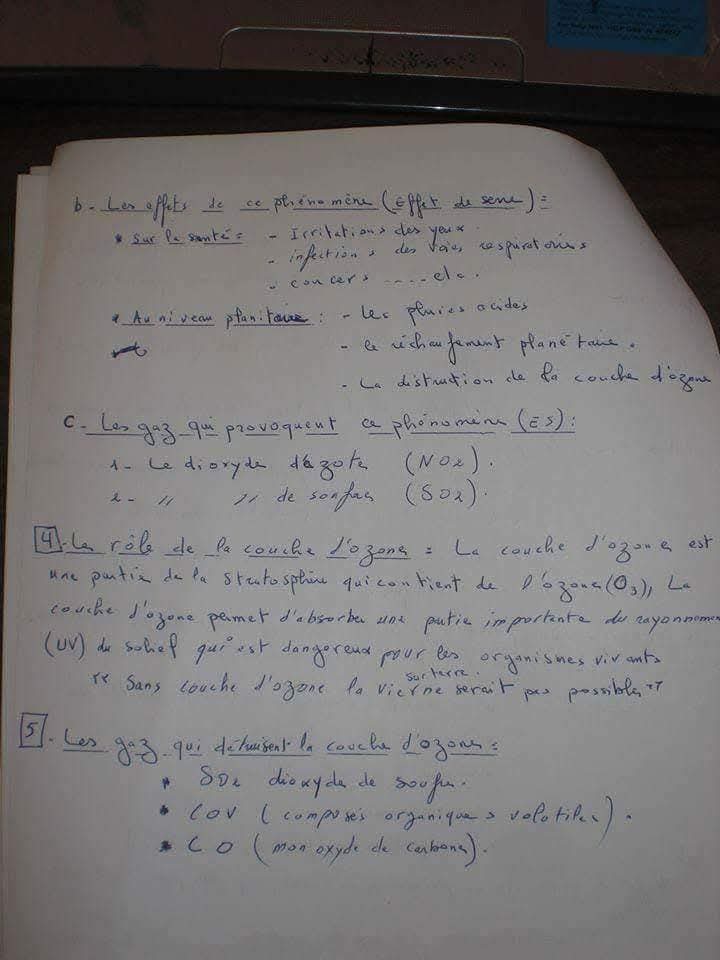 b - Les effets de ce phénomène (Effet de serre) :
* Sur la santé : - Irritations des yeux.
- infections des voies respiratoires
- concers .... etc.
* Au niveau planitaire : - Les pluies acides
- le réchaufement planétaire.
- La distruction de la couche d'ozone
C - Les gaz qui provoquent ce phénomène (ES) :
1- Le dioxyde d'azote (NO2).
2- " " de soufre (SO2).
4 - Le rôle de la couche d'ozone : La couche d'ozone est
une partie de la stratosphère qui contient de l'ozone (O3), La
couche d'ozone permet d'absorber une partie importante du rayonnement
(UV) du soleil qui est dangereux pour les organismes vivants
" Sans couche d'ozone la vie sur terre ne serait pas possible "
5 - Les gaz qui détruisent la couche d'ozone :
* SO2 dioxyde de soufre.
* COV (composés organiques volatiles).
* CO (monoxyde de carbone).